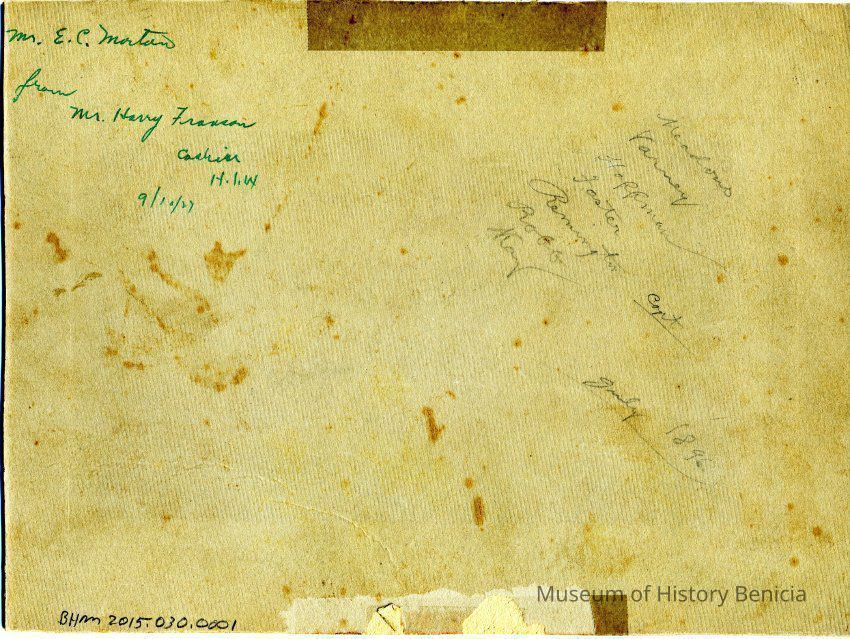 Mr. E. C. Morton
from
Mr. Harry Franson
Cashier
H.I.W
9/10/27
Meadows
Varney
Hoffman
Foster
Remington Capt
Robb
Kay
July 1896
Museum of History Benicia
BHM 2015.030.0001